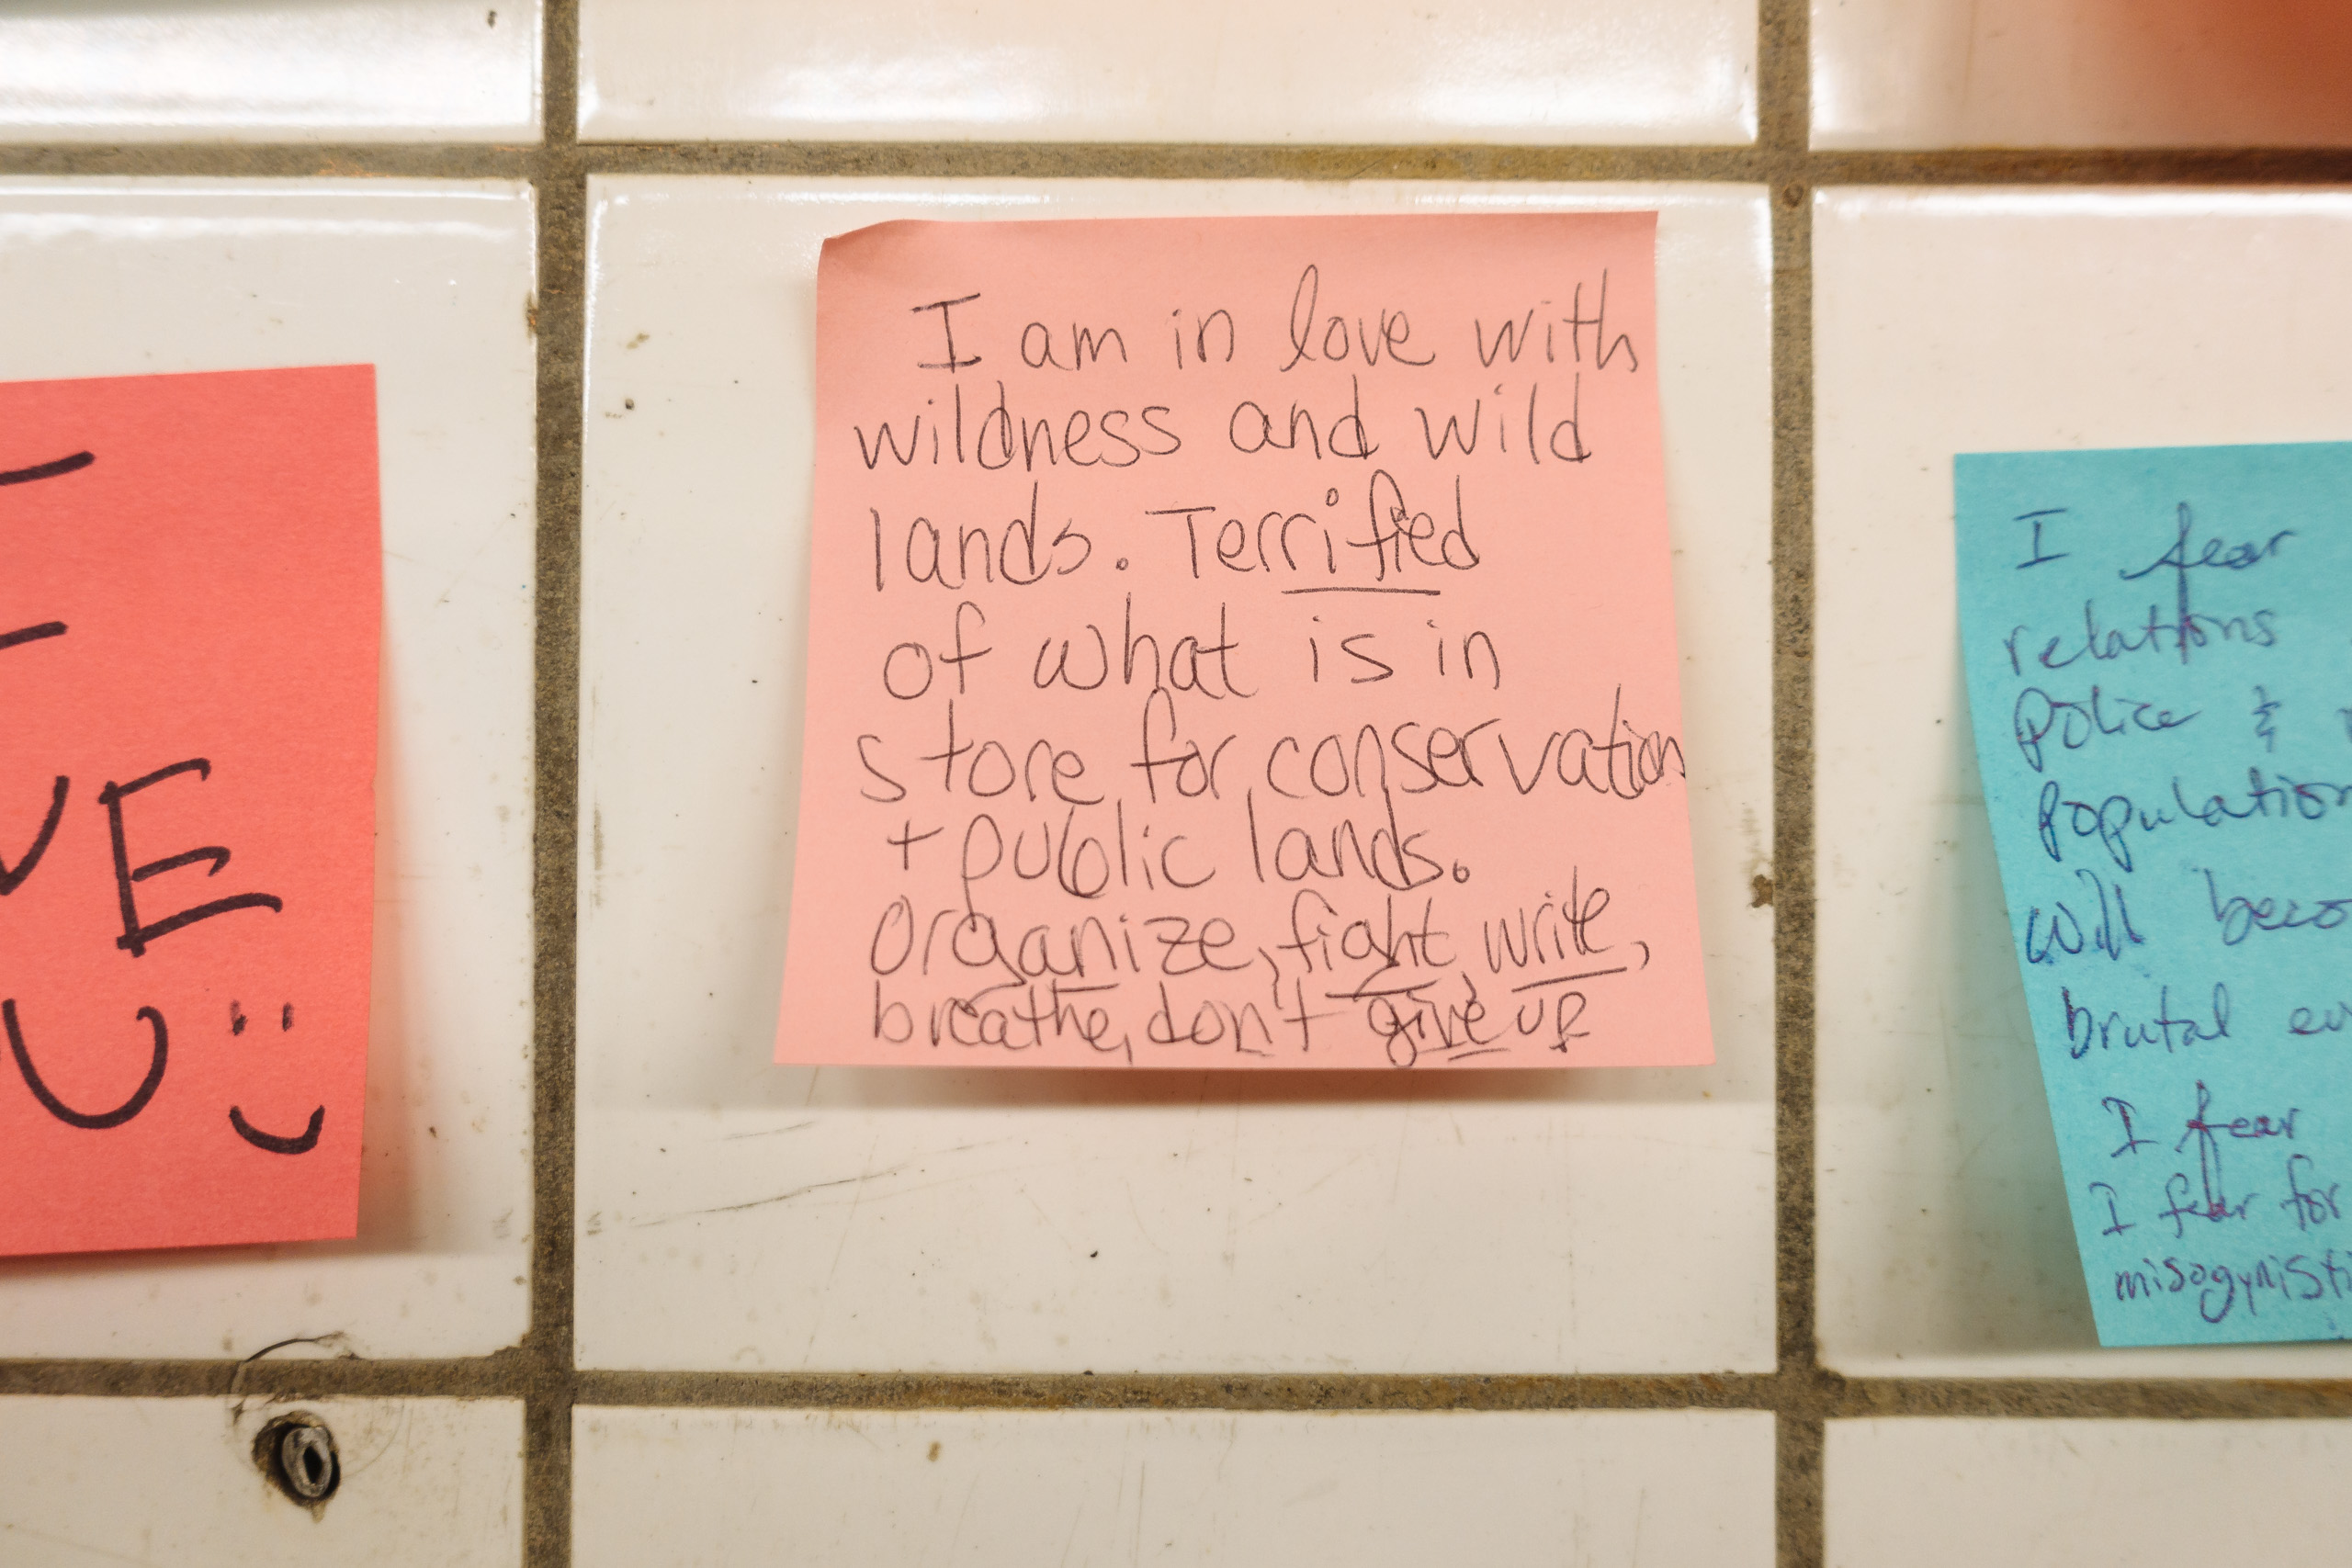 VE
U :)
I am in love with
wildness and wild
lands. Terrified
of what is in
store for conservation
+ public lands.
Organize, fight, write,
breathe, don't give up
I fear
relations
Police &
population
will beco
brutal ev
I fear
I fear for
misogynisti